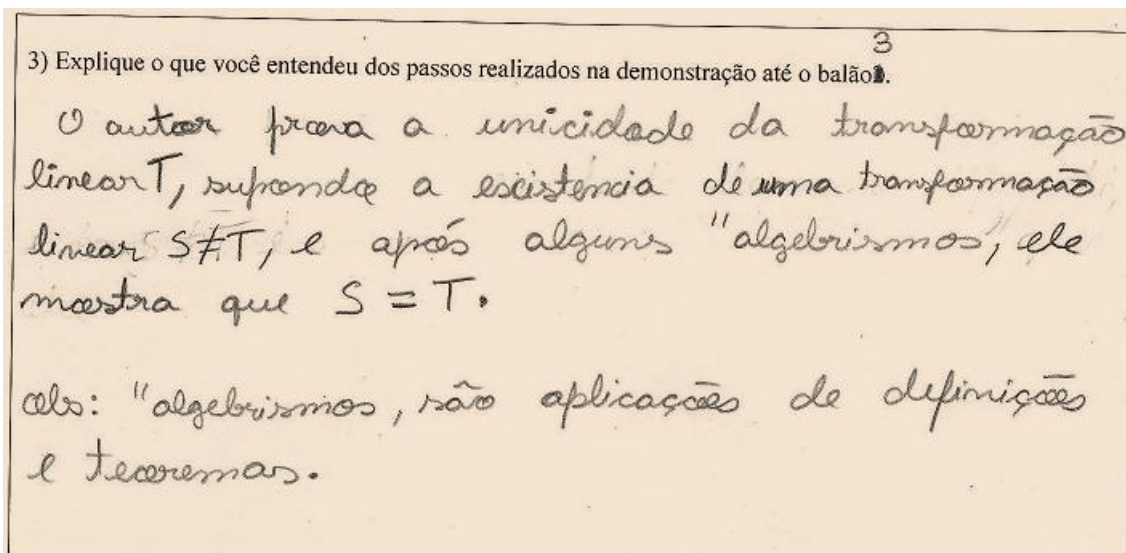 3
3) Explique o que você entendeu dos passos realizados na demonstração até o balão.
O autor prova a unicidade da transformação
linear T, supondo a escistencia de uma transformação
linear S≠T, e após alguns "algebrismos, ele
mostra que S = T.
obs: "algebrismos, são aplicações de definições
e teoremas.